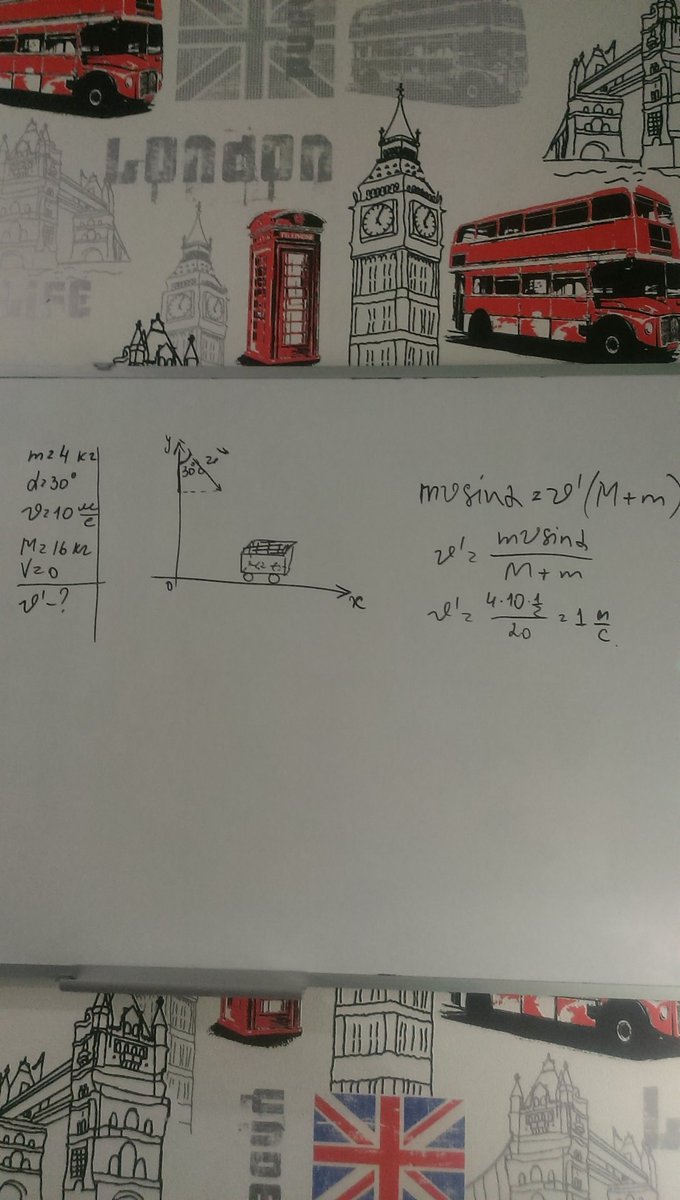 LONDON
TELEPHONE
LIFE
m=4 кг
α=30°
υ=10 м/с
M=16 кг
V=0
υ'-?
y
30°
0
x
mυsinα=υ'(M+m)
υ'= mυsinα / M+m
υ'= 4·10·1/2 / 20 = 1 м/с.